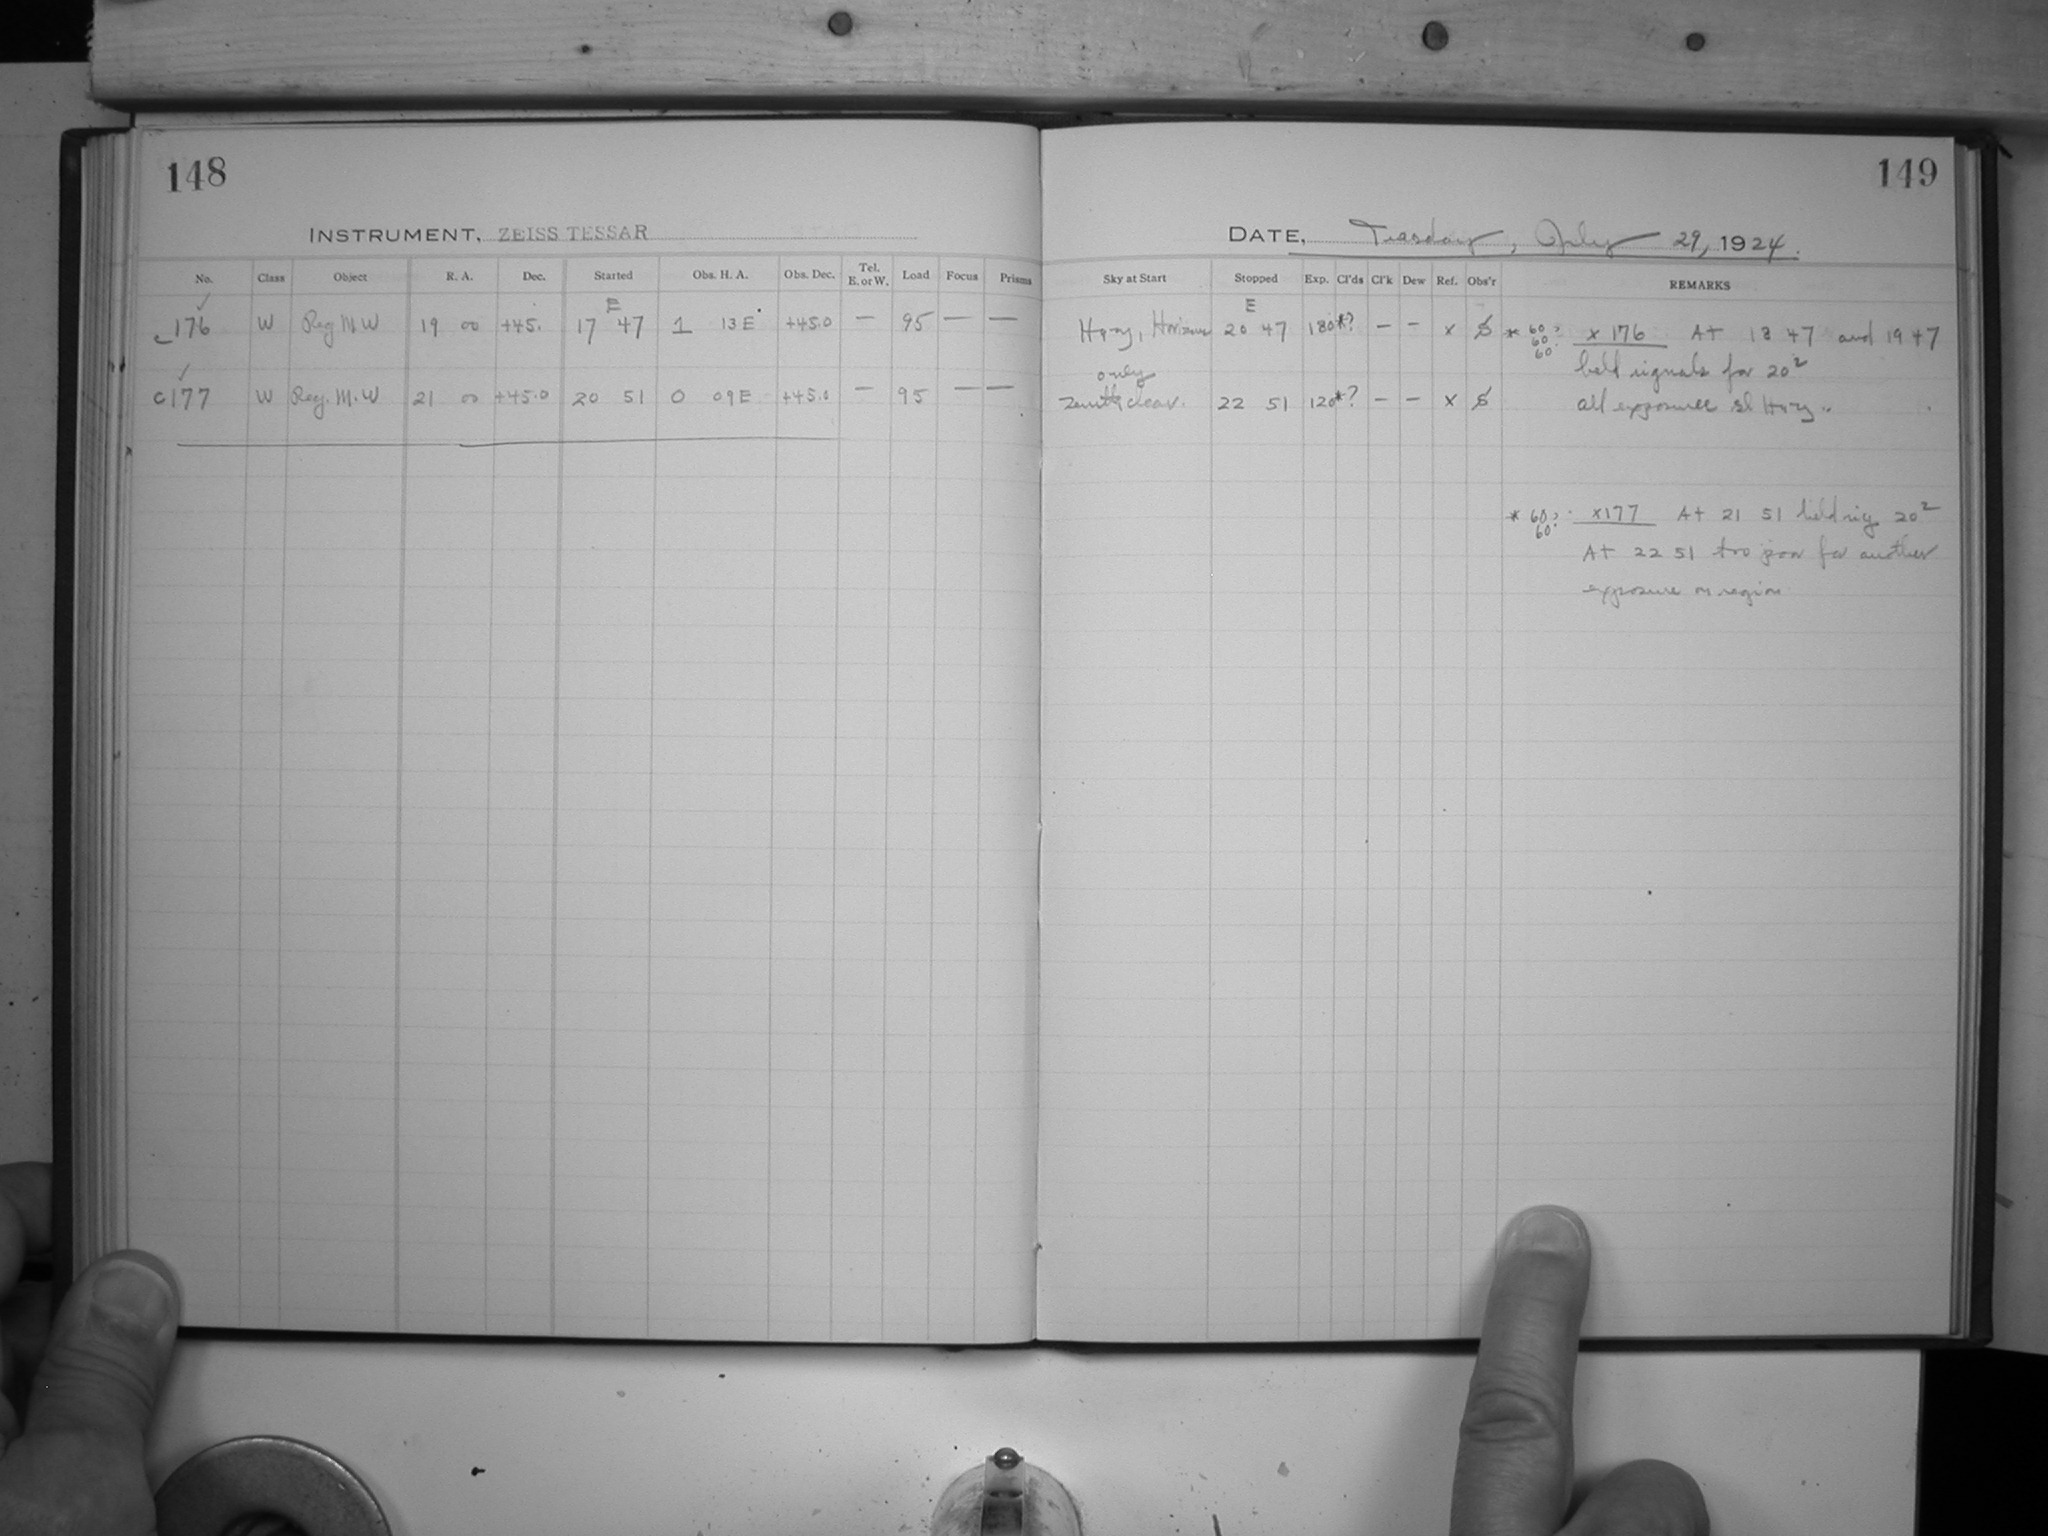 148
INSTRUMENT, ZEISS TESSAR
No. Class Object R. A. Dec. Started Obs. H. A. Obs. Dec. Tel. E. or W. Load Focus Prisms
E
c176 W Reg M.W 19 00 +45. 17 47 1 13 E +45.0 — 95 — —
c177 W Reg. M.W 21 00 +45.0 20 51 0 09 E +45.0 — 95 — —
149
DATE, Tuesday, July 29, 1924.
Sky at Start Stopped Exp. Cl'ds Cl'k Dew Ref. Obs'r REMARKS
E
Hazy, Horizon 20 47 180*? — — x * 60? x 176 At 18 47 and 19 47
60?
60
only held signals for 20²
Zenith clear. 22 51 120*? — — x all exposures sl Hazy.
* 60? x177 At 21 51 held sig 20²
60?
At 22 51 too poor for another
exposure on region